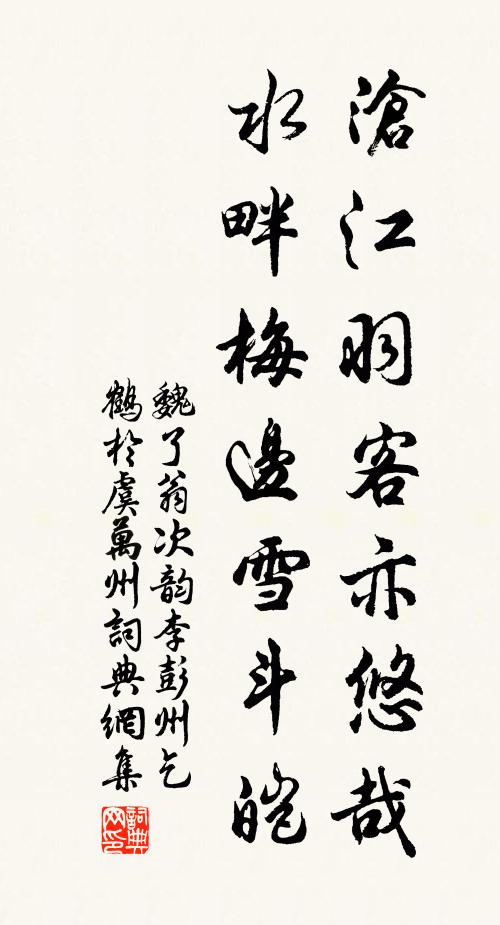 滄江羽客亦悠哉
水畔梅邊雪斗皚
魏了翁次韵李彭州乞
鶴於虞萬州詞典網集
詞典
网印